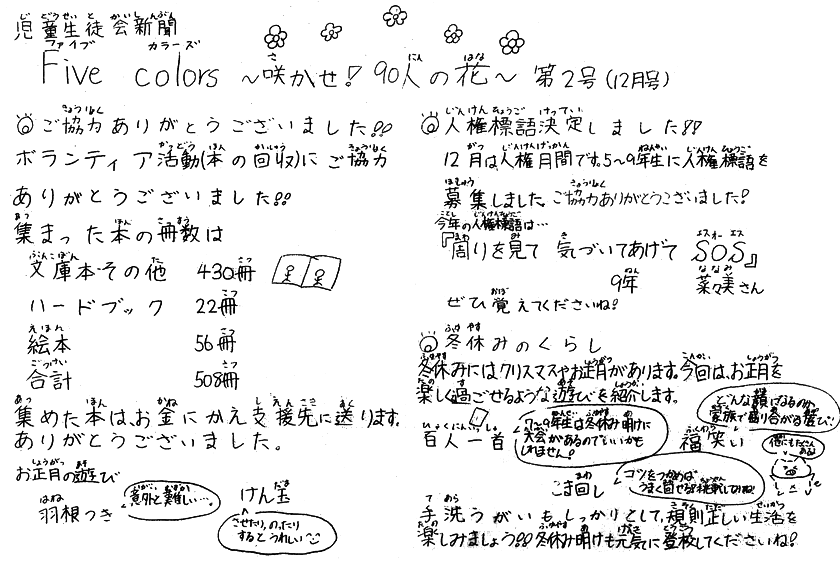 児童生徒会新聞
Five colors ～咲かせ!90人の花～ 第2号(12月号)
◎ご協力ありがとうございました!!
ボランティア活動(本の回収)にご協力
ありがとうございました!!
集まった本の冊数は
文庫本その他 430冊
ハードブック 22冊
絵本 56冊
合計 508冊
集めた本は、お金にかえ支援先に送ります。
ありがとうございました。
お正月の遊び
羽根つき
意外と難しい…。
けん玉
させたり、のったり
するとうれしい
◎人権標語決定しました!!
12月は人権月間です。5～9年生に人権標語を
募集しました。ご協力ありがとうございました!
今年の人権標語は…
『周りを見て 気づいてあげて SOS』
9年 菜々美さん
ぜひ覚えてくださいね!
◎冬休みのくらし
冬休みにはクリスマスやお正月があります。今回は、お正月を
楽しく過ごせるような遊びを紹介します。
百人一首
7～9年生は冬休み明けに
大会があるのでいいかも
しれません!
福笑い
どんな顔になるのか
家族で盛り上がる遊び!
他にもたくさん
あるよ
こま回し
コツをつかめば
うまく回せるか挑戦してみね!
手洗うがいもしっかりとして、規則正しい生活を
楽しみましょう!!冬休み明けも元気に登校してくださいね!